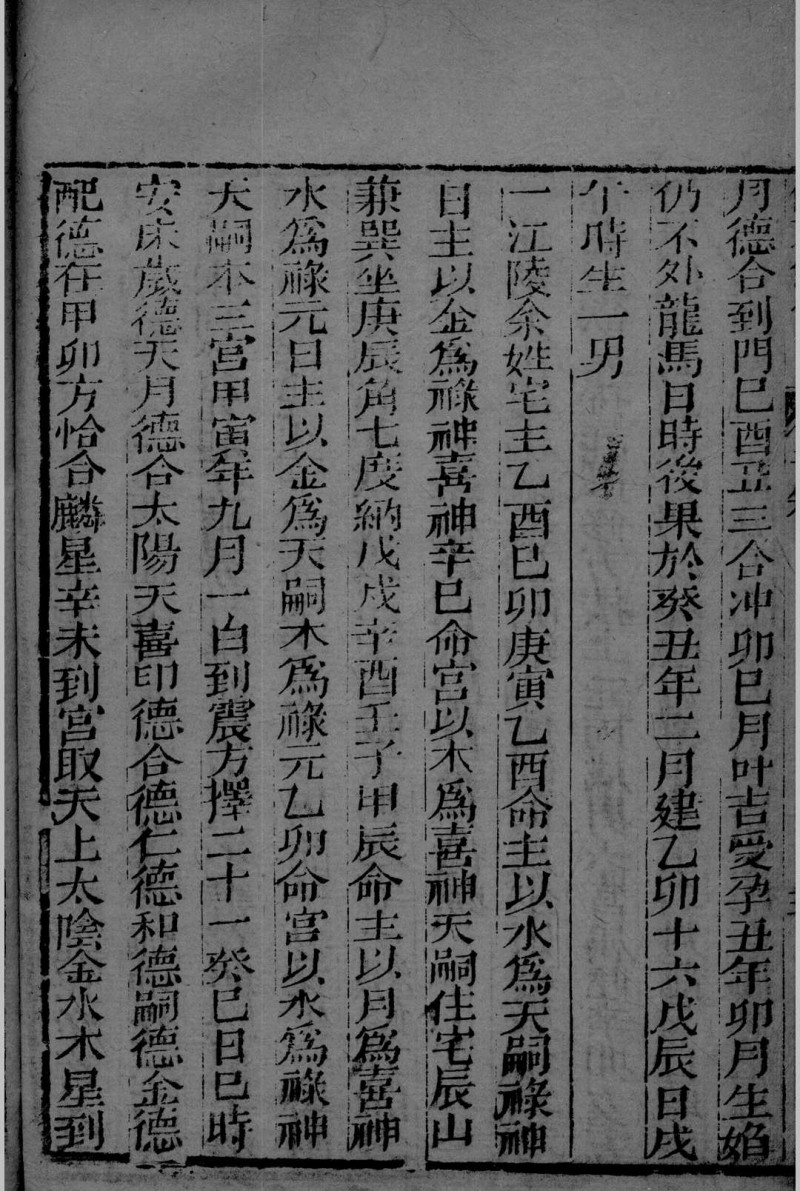 月德合到門巳酉丑三合冲卯巳月叶吉受孕丑年卯月生焰
仍不外龍馬日時後果於癸丑年二月建乙卯十六戊辰日戌
午時生一男
一江陵余姓宅主乙酉巳卯庚寅乙酉命主以水為天嗣祿神
日主以金為祿神喜神辛巳命宮以木為喜神天嗣住宅辰山
兼巽坐庚辰角七度納戊戌辛酉壬子甲辰命主以月為喜神
水為祿元日主以金為天嗣木為祿元乙卯命宮以水為祿神
天嗣本三宮甲寅年九月一白到震方擇二十一癸巳日巳時
安床歲德天月德合太陽天喜印德合德仁德和德嗣德金德
配德在甲卯方恰合麟星辛未到宮取天上太陰金水木星到